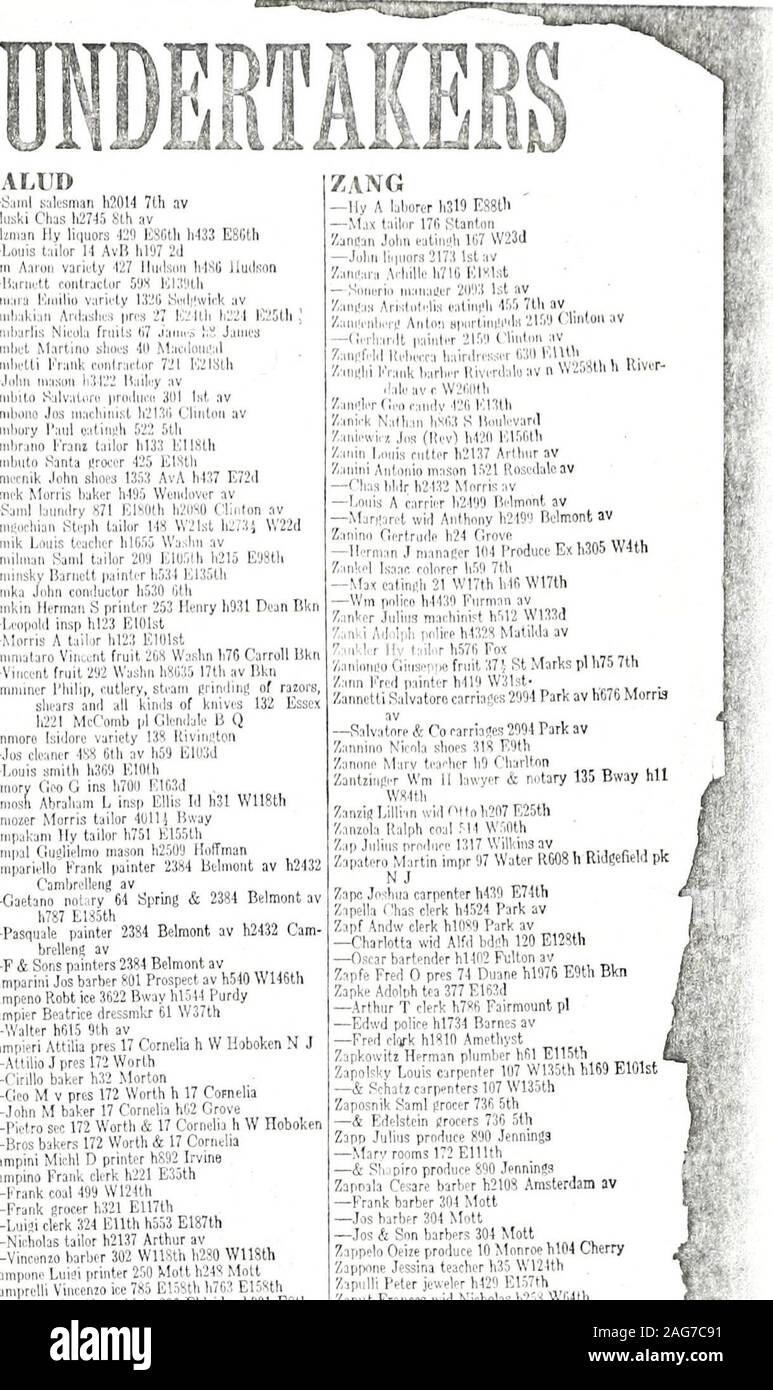 UNDERTAKERS
ALUD
Saml salesman h2014 7th av
luski Chas h2745 8th av
lzman Hy liquors 429 E86th h433 E86th
Louis tailor 14 AvB h197 2d
m Aaron variety 427 Hudson h486 Hudson
Barnett contractor 598 E139th
mara Emilio variety 1326 Sedgwick av
mbakian Ardashes pres 27 E24th h224 E25th
mbarlis Nicola fruits 67 James James
mbet Martino shoes 40 Macdougal
mbetti Frank contractor 721 E218th
John mason h3422 Bailey av
mbito Salvatore produce 301 1st av
mbone Jos machinist h2136 Clinton av
mbory Paul eatingh 522 5th
mbrano Franz tailor h133 E118th
mbuto Santa grocer 425 E18th
mecnik John shoes 1353 AvA h437 E72d
mek Morris baker h495 Wendover av
Saml laundry 871 E180th h2080 Clinton av
mgochian Steph tailor 148 W21st h273½ W22d
mik Louis teacher h1655 Washn av
milman Saml tailor 209 E105th h215 E98th
minsky Barnett painter h534 E135th
mka John conductor h530 6th
mkin Herman S printer 253 Henry h931 Dean Bkn
-Leopold insp h123 E101st
-Morris A tailor h123 E101st
mmataro Vincent fruit 268 Washn h76 Carroll Bkn
-Vincent fruit 292 Washn h8635 17th av Bkn
mminer Philip, cutlery, steam grinding of razors,
shears and all kinds of knives 132 Essex
h221 McComb pl Glendale B Q
nmore Isidore variety 138 Rivington
-Jos cleaner 488 6th av h59 E103d
-Louis smith h369 E10th
mory Geo G ins h700 E163d
mosh Abraham L insp Ellis Id h31 W118th
mozer Morris tailor 4011½ Bway
mpakam Hy tailor h751 E155th
mpal Guglielmo mason h2509 Hoffman
mpariello Frank painter 2384 Belmont av h2432
Cambrelleng av
-Gaetano notary 64 Spring & 2384 Belmont av
h787 E185th
-Pasquale painter 2384 Belmont av h2432 Cam-
brelleng av
-F & Sons painters 2384 Belmont av
mparini Jos barber 801 Prospect av h540 W146th
mpeno Robt ice 3622 Bway h1544 Purdy
mpier Beatrice dressmkr 61 W37th
-Walter h615 9th av
mpieri Attilia pres 17 Cornelia h W Hoboken N J
-Attilio J pres 172 Worth
-Cirillo baker h32 Morton
-Geo M v pres 172 Worth h 17 Cornelia
-John M baker 17 Cornelia h62 Grove
-Pietro sec 172 Worth & 17 Cornelia h W Hoboken
-Bros bakers 172 Worth & 17 Cornelia
ampini Michl D printer h892 Irvine
ampino Frank clerk h221 E35th
-Frank coal 499 W124th
-Frank grocer h321 E117th
-Luigi clerk 324 E11th h553 E187th
-Nicholas tailor h2137 Arthur av
-Vincenzo barber 302 W118th h280 W118th
ampone Luigi printer 250 Mott h248 Mott
amprelli Vincenzo ice 785 E158th h763 E158th
ZANG
—Hy A laborer h319 E88th
—Max tailor 176 Stanton
Zangan John eatingh 167 W23d
—John liquors 2173 1st av
Zangara Achille h716 E181st
—Sonerio manager 2093 1st av
Zangas Aristotelis eatingh 455 7th av
Zangenberg Anton sportinggds 2159 Clinton av
—Gerhardt painter 2159 Clinton av
Zangfeld Rebecca hairdresser 630 E11th
Zanghi Frank barber Riverdale av n W258th h River-
dale av c W260th
Zangler Geo candy 426 E13th
Zanick Nathan h863 S Boulevard
Zaniewicz Jos (Rev) h420 E156th
Zanin Louis cutter h2137 Arthur av
Zanini Antonio mason 1521 Rosedale av
—Chas bldr h2432 Morris av
—Louis A carrier h2499 Belmont av
—Margaret wid Anthony h2499 Belmont av
Zanino Gertrude h24 Grove
—Herman J manager 104 Produce Ex h305 W4th
Zankel Isaac colorer h59 7th
—Max eatingh 21 W17th h46 W17th
—Wm police h4439 Furman av
Zanker Julius machinist h512 W133d
Zanki Adolph police h4328 Matilda av
Zankler Hy tailor h576 Fox
Zanlongo Giuseppe fruit 37½ St Marks pl h75 7th
Zann Fred painter h419 W31st
Zannetti Salvatore carriages 2994 Park av h676 Morris
av
—Salvatore & Co carriages 2994 Park av
Zannino Nicola shoes 318 E9th
Zanone Mary teacher h9 Charlton
Zantzinger Wm H lawyer & notary 135 Bway h11
W84th
Zanzig Lillian wid Otto h207 E25th
Zanzola Ralph coal 514 W50th
Zap Julius produce 1317 Wilkins av
Zapatero Martin impr 97 Water R608 h Ridgefield pk
N J
Zape Joshua carpenter h439 E74th
Zapella Chas clerk h4524 Park av
Zapf Andw clerk h1089 Park av
—Charlotta wid Alfd bdgh 120 E128th
—Oscar bartender h1402 Fulton av
Zapfe Fred O pres 74 Duane h1976 E9th Bkn
Zapke Adolph tea 377 E163d
—Arthur T clerk h786 Fairmount pl
—Edwd police h1734 Barnes av
—Fred clerk h1810 Amethyst
Zapkowitz Herman plumber h61 E115th
Zapolsky Louis carpenter 107 W135th h169 E101st
—& Schatz carpenters 107 W135th
Zaposnik Saml grocer 736 5th
—& Edelstein grocers 736 5th
Zapp Julius produce 890 Jennings
—Mary rooms 172 E111th
—& Shapiro produce 890 Jennings
Zappala Cesare barber h2108 Amsterdam av
—Frank barber 304 Mott
—Jos barber 304 Mott
—Jos & Son barbers 304 Mott
Zappelo Oeize produce 10 Monroe h104 Cherry
Zappone Jessina teacher h35 W124th
Zapulli Peter jeweler h429 E157th
Zaput Frances wid Nicholas h258 W64th
alamy
Image ID: 2AG7C91
www.alamy.com